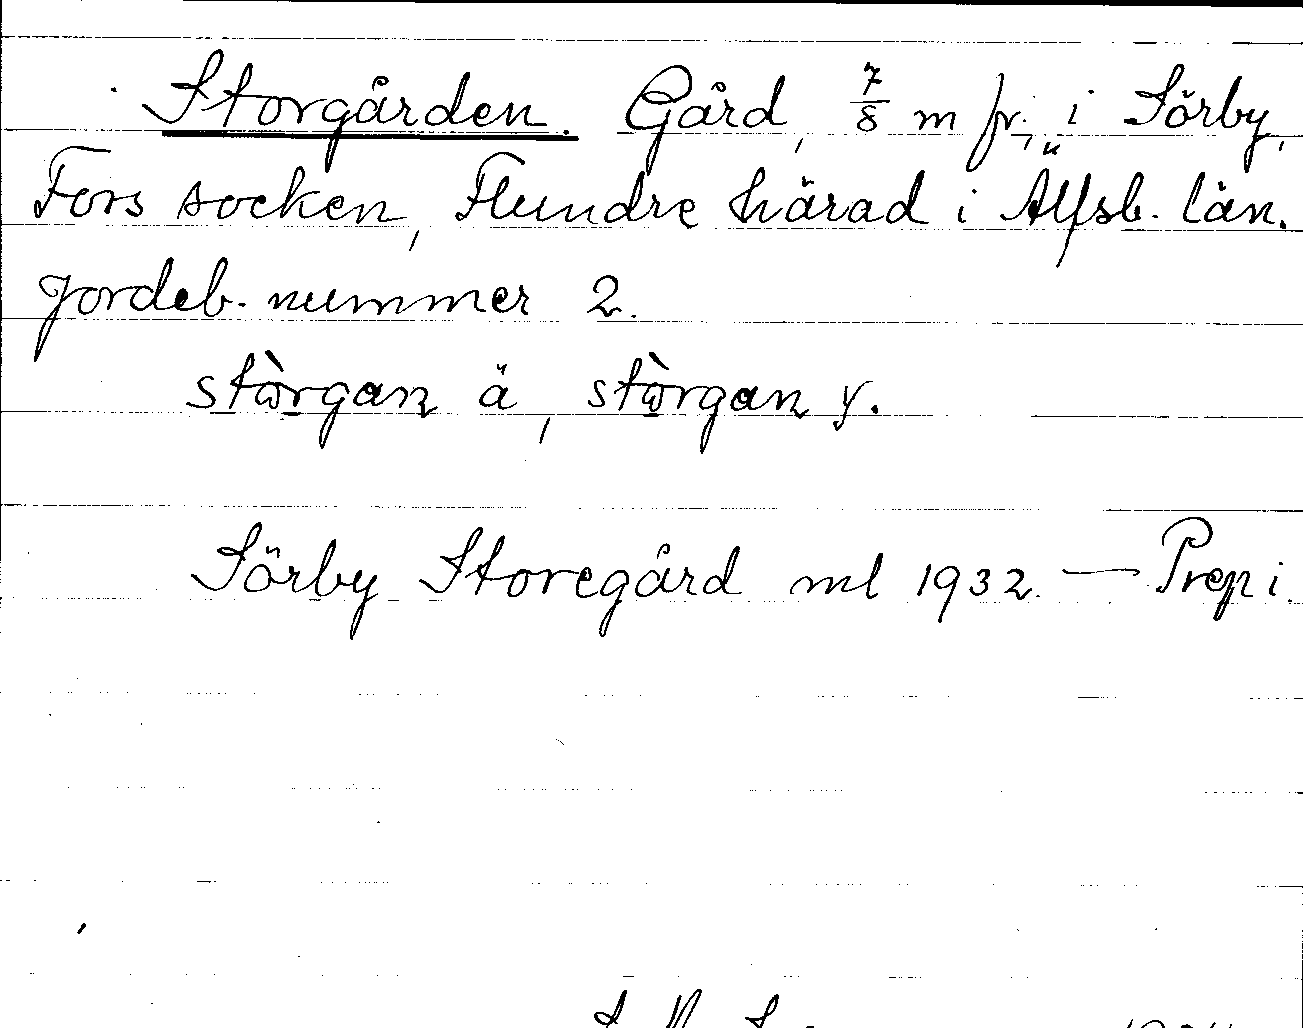 Storgården. Gård, 7/8 m fr., i Sörby,
Fors socken, Flundre härad i Älfsb. län.
Jordeb. nummer 2.
stòrgan ä, stòrgan y.
Sörby Storegård ml 1932 — Prep i.